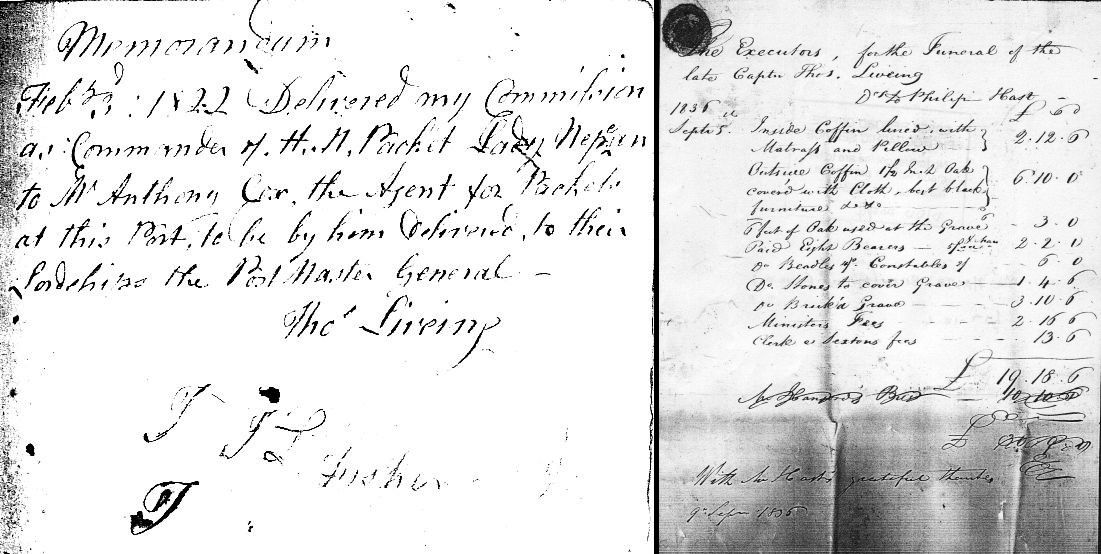 Memorandum
Feby 3d : 1822 Delivered my Commission
as Commander of H. M. Packet Lady Nepean
to Mr Anthony Cox, the Agent for Packets
at this Port, to be by him delivered, to their
Lordships the Post Master General —
Thos Liveing
T T L
Fisher
T
The Executors, for the Funeral of the
late Captn Thos. Liveing
Dr to Philip Hast
1836 £ s d
Septr 5. Inside Coffin lined, with
Matrass and Pillow 2.12.6
Outside Coffin 1½ Inch Oak
covered with Cloth, best black
furniture &c &c 6.10.0
6 feet of Oak used at the Grave - 3.0
Paid Eight Bearers — 2.2.0
Do Beadles & Constables 6.0
Do Stones to cover Grave 1.4.6
Do Brick'd Grave 3.10.6
Ministers Fees 2.16.6
Clerk & Sextons fees 13.6
£ 19.18.6
Bill
£
With Mr Hast's grateful thanks
9 Sepr 1836